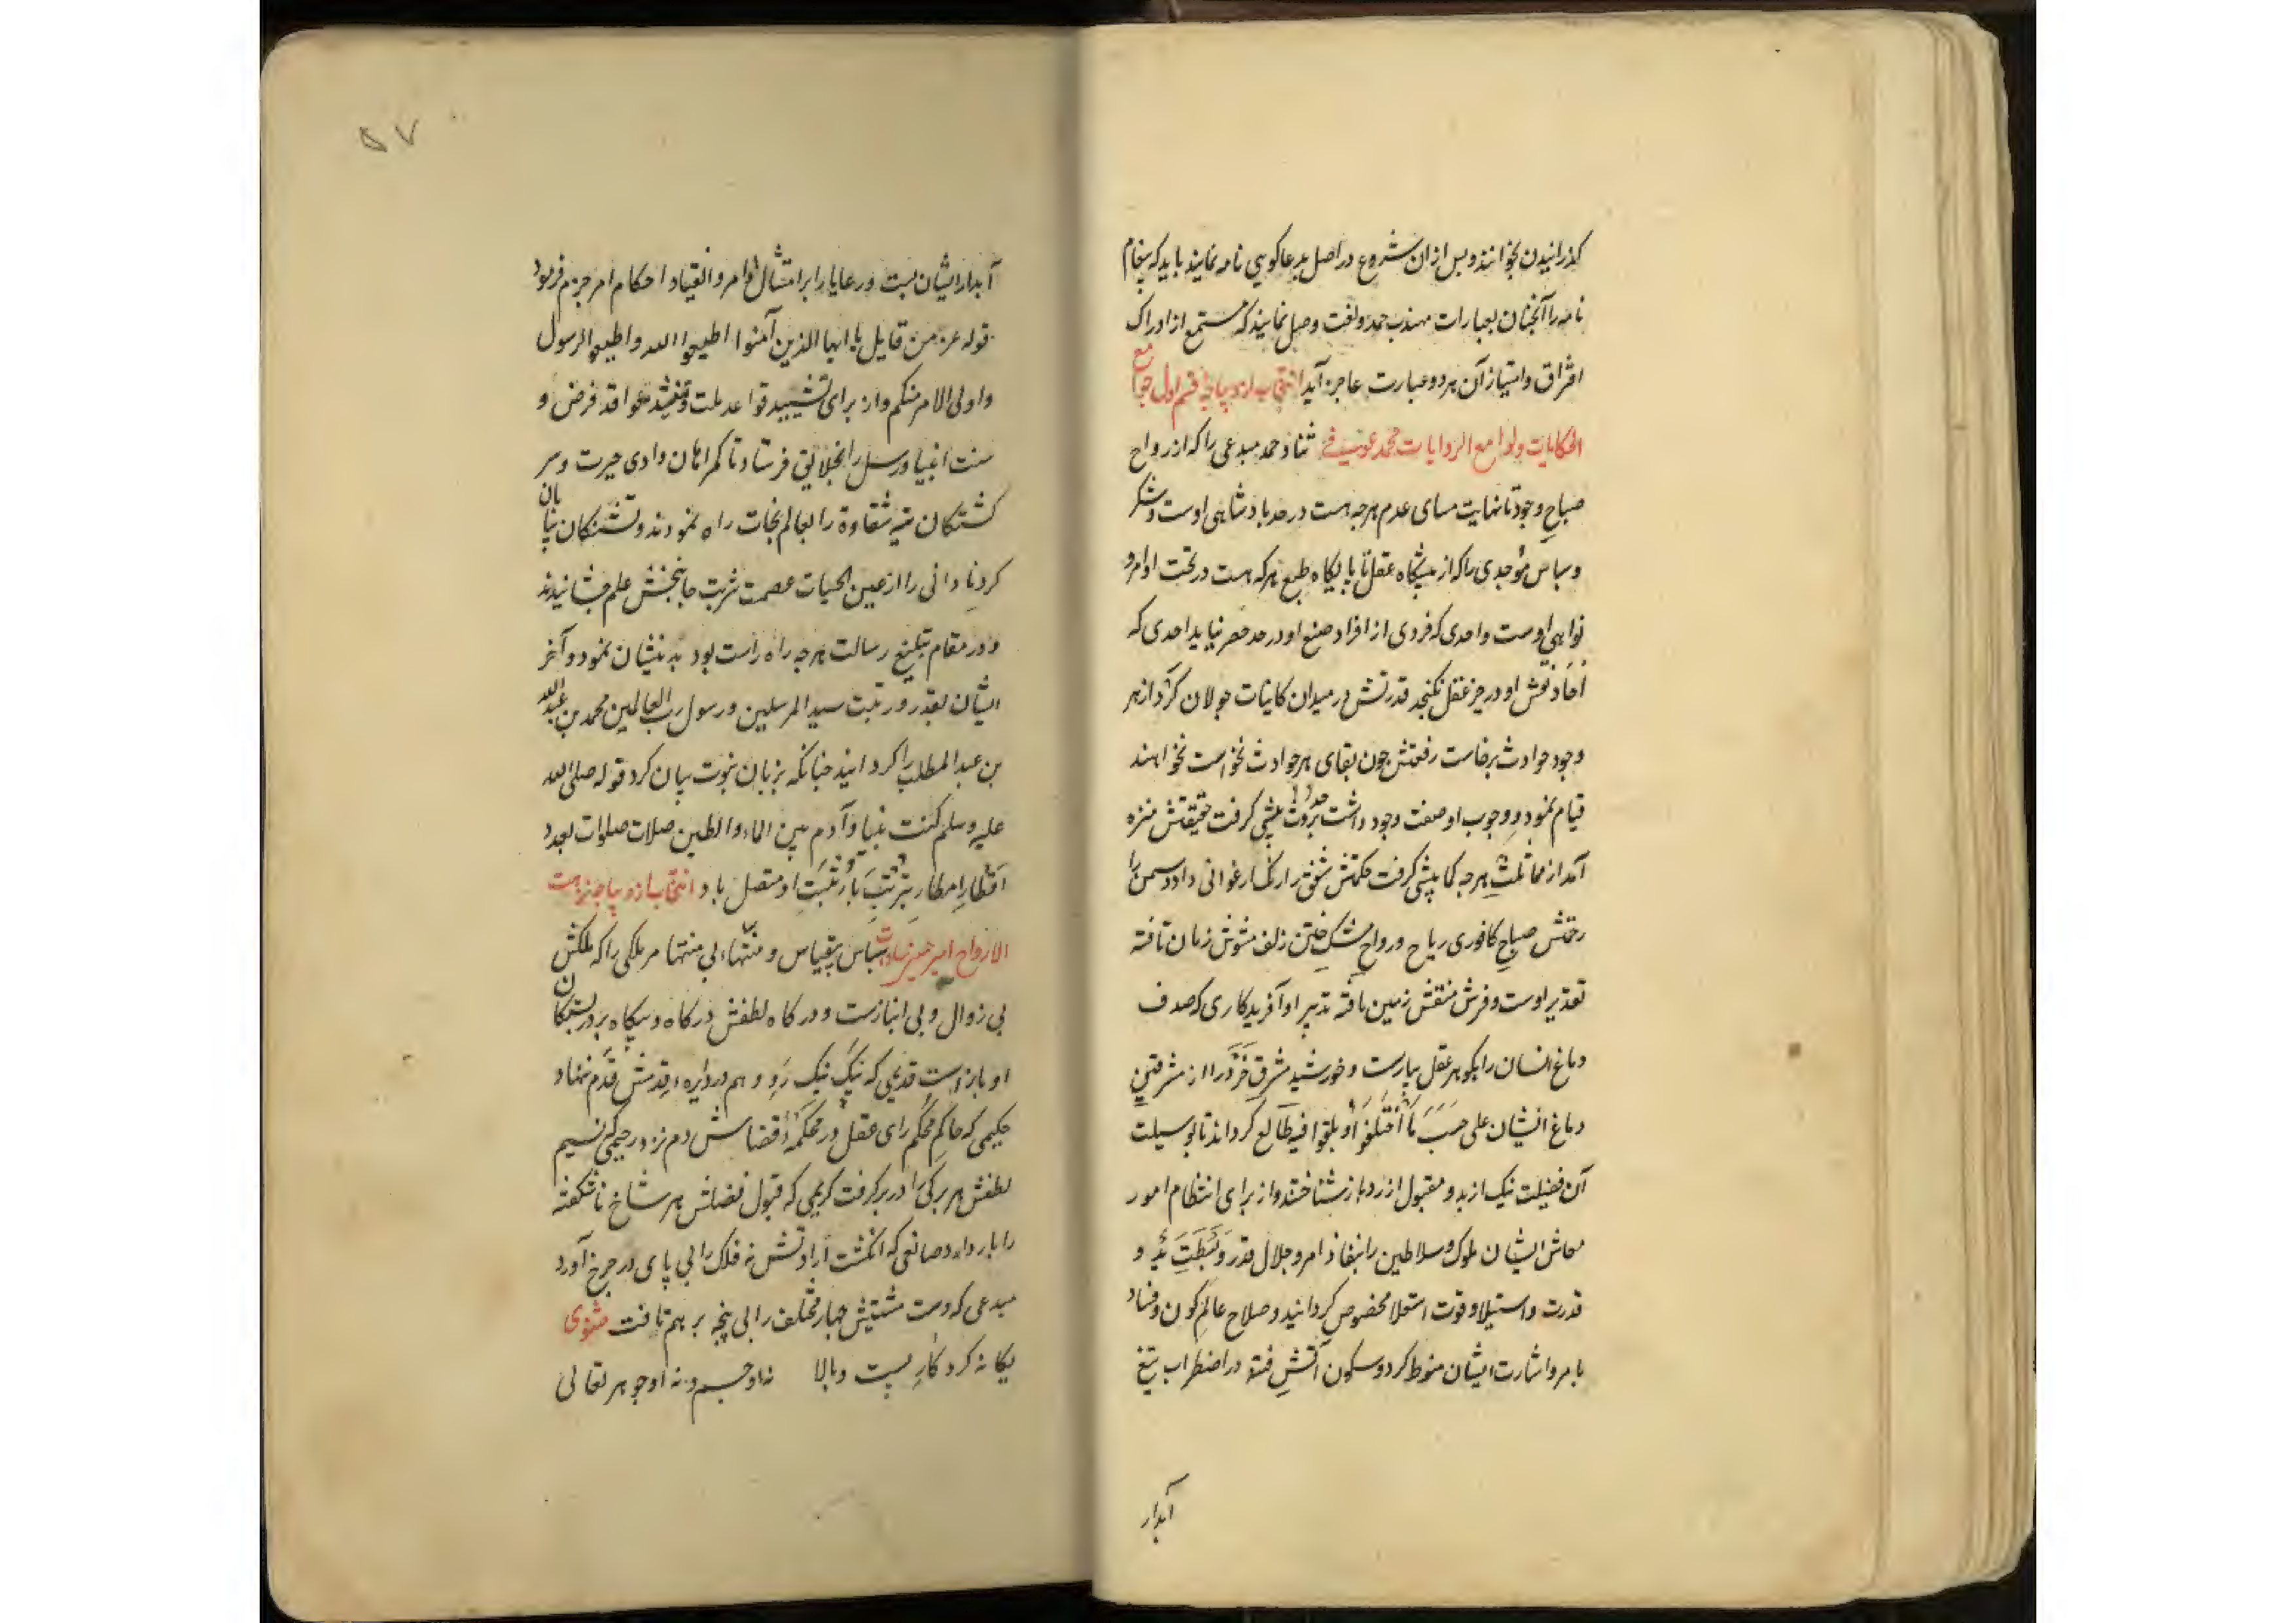 کذرانیدن بخوانند و بس ازان شروع در اصل مدعا کویی نامه نمایند باید که پیغام
نامه را آنجنان بعبارات مهذب حمد و نعت وصل نمایند که مستمع از ادراک
افتراق و امتیاز آن هر دو عبارت عاجز آید انتخاب از دیباجهٔ قسم اول جوامع
الحکایات و لوامع الروایات محمد عوفی ثنا و حمد مبدعی را که از رواح
صباح وجود تا نهایت مسای عدم هرجه هست در حد بادشاهی اوست و شکر
و سباس موجدی را که از پیشکاه عقل تا پایکاه طبع هرکه هست در تحت اوامر و
نواهی اوست واحدی که فردی از افراد صنع او در حد حصر نیاید احدی که
آحاد نعتش او در حیز عقل نکنجد قدرتش در میدان کاینات جولان کرد از هر
وجود حوادث برخاست رفعتش جون بقای هر حوادث نخواست نخواهند
قیام نمود و وجوب او صفت وجود داشت بر حدوث پیشی کرفت حقیقتش منزه
آمد از مماثلت هرجه کما پیشی کرفت حکمتش شفق را رنک ارغوانی داد و سمن را
رحمتش صباح کافوری ریاح و رواح مشک ختن زلف مشوش زمان تافته
تقدیر اوست و فرش منقش زمین بافته تدبیر او آفریدکاری که صدف
دماغ انسان را بکوهر عقل بیارست و خورشید مشرق خرد را از مشرقین
دماغ ایشان علی حسب ما اختلفوا و بلقوا فیه طالع کرداند تا بوسیلت
آن فضیلت نیک از بد و مقبول از رد باز شناختند و از برای انتظام امور
معاش ایشان ملوک و سلاطین را بنفاذ امر و جلال قدر و بسطت ید و
قدرت و استیلا و قوت استعلا مخصوص کردانید و صلاح عالم کون و فساد
بامر و اشارت ایشان منوط کرد و سکون آتش فتنه در اضطراب تیغ
آبدار
۵۷
آبدار ایشان بست و رعایا را بر امتثال اوامر و انقیاد احکام امر جزم فرمود
قوله عز من قایل یا ایها الذین آمنوا اطیعوا الله و اطیعوا الرسول
و اولی الامر منکم و از برای تشیید قواعد ملت و تنفیذ عواقد فرض و
سنت انبیا و رسل را بخلایق فرستاد تا کمراهان وادی حیرت و سر
کشتکان تیه شقاوة را بعالم نجات راه نمودند و تشنکان بیابان
کرد نادانی را از عین الحیات عصمت شربت جانبخش علم جشانیدند
و در مقام تبلیغ رسالت هرجه راه راست بود بدیشان نمود و آخر
ایشان بقدر و رتبت سید المرسلین و رسول رب العالمین محمد بن عبدالله
بن عبد المطلب را کردانید جنانکه بزبان نبوت بیان کرد قوله صلی الله
علیه و سلم کنت نبیا و آدم بین الماء و الطین صلات صلوات بعدد
اقطار امطار بترتیب با رتبت او متصل باد انتخاب از دیباجه نزهت
الارواح امیر حسین سادات سباس بیقیاس و منتهاء بی منتها مر ملکی را که ملکش
بی زوال و بی انبازست و درکاه لطفش در کاه و بیکاه بر در بستکان
او بازست قدیمی که نیک نیک رو و هم در دایرهٔ قدمش قدم نهاد
حکیمی که حاکم محکم رای عقل در محکمهٔ قضاش دم نزد رحیمی که نسیم
لطفش هر برکی را در بر کرفت کریمی که قبول فضلش هر شاخ ناشکفته
را بار داد و صانعی که انکشت ارادتش نه فلک را بی پای در جرخ آورد
مبدعی که دست مشیتش جهار مختلف را بی پنجه بر هم تافت مثنوی
یکانه کردکار پست و بالا نه او جسم و نه او جوهر تعالی